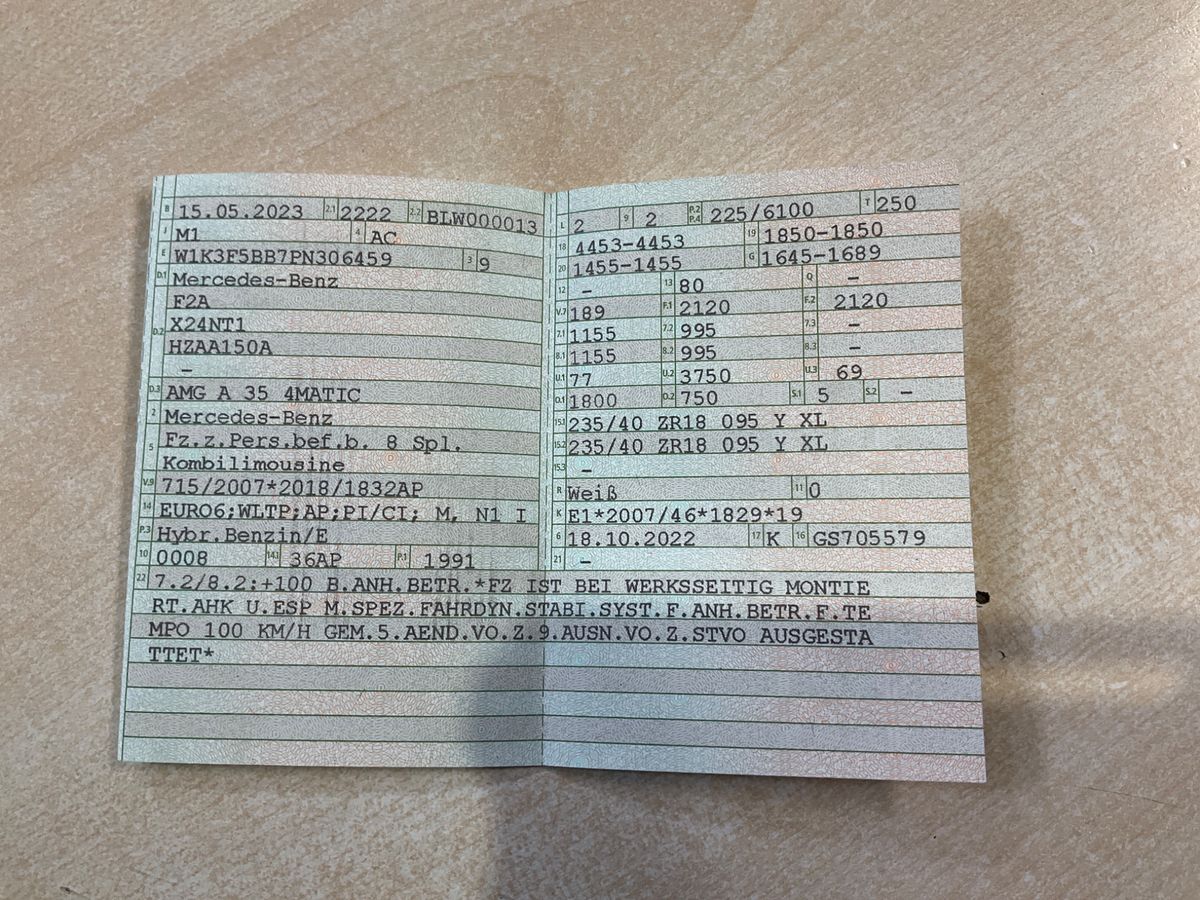 B 15.05.2023 2.1 2222 2.2 BLW000013
J M1 4 AC
E W1K3F5BB7PN306459 3 9
D.1 Mercedes-Benz
F2A
D.2 X24NT1
HZAA150A
–
D.3 AMG A 35 4MATIC
2 Mercedes-Benz
5 Fz.z.Pers.bef.b. 8 Spl.
Kombilimousine
V.9 715/2007*2018/1832AP
14 EURO6;WLTP;AP;PI/CI; M, N1 I
P.3 Hybr.Benzin/E
10 0008 14.1 36AP P.1 1991
L 2 9 2 P.2 P.4 225/6100 T 250
18 4453-4453 19 1850-1850
20 1455-1455 G 1645-1689
12 – 13 80 Q –
V.7 189 F.1 2120 F.2 2120
7.1 1155 7.2 995 7.3 –
8.1 1155 8.2 995 8.3 –
U.1 77 U.2 3750 U.3 69
O.1 1800 O.2 750 S.1 5 S.2 –
15.1 235/40 ZR18 095 Y XL
15.2 235/40 ZR18 095 Y XL
15.3 –
R Weiß 11 0
K E1*2007/46*1829*19
6 18.10.2022 17 K 16 GS705579
21 –
22 7.2/8.2:+100 B.ANH.BETR.*FZ IST BEI WERKSSEITIG MONTIE
RT.AHK U.ESP M.SPEZ.FAHRDYN.STABI.SYST.F.ANH.BETR.F.TE
MPO 100 KM/H GEM.5.AEND.VO.Z.9.AUSN.VO.Z.STVO AUSGESTA
TTET*